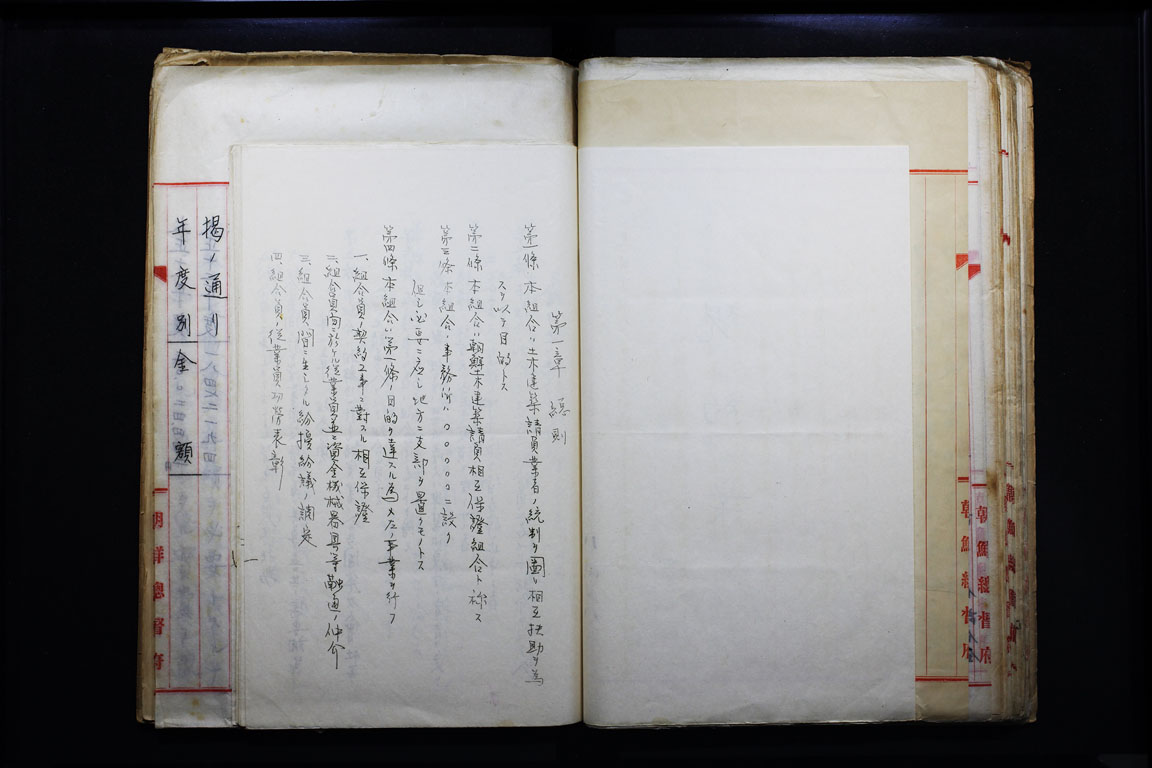 第一章 總則
第一條 本組合ハ土木建築請負業者ノ統制ヲ圖リ相互扶助ヲ爲
スヲ以テ目的トス
第二條 本組合ハ朝鮮土木建築請負相互保證組合ト称ス
第三條 本組合ノ事務所ハ〇〇〇〇〇ニ設ク
但シ必要ニ應シ地方ニ支部ヲ置クモノトス
第四條 本組合ハ第一條ノ目的ヲ達スル爲メ左ノ事業ヲ行フ
一、組合員ノ契約工事ニ對スル相互保證
二、組合員間ニ於ケル從業員並ニ資金機械器具等融通ノ仲介
三、組合員間ニ生シタル紛擾紛議ノ調定
四、組合員ノ從業員功労表彰
掲ノ通リ
年度別金額
朝鮮總督府
朝鮮總督府
朝鮮總督府